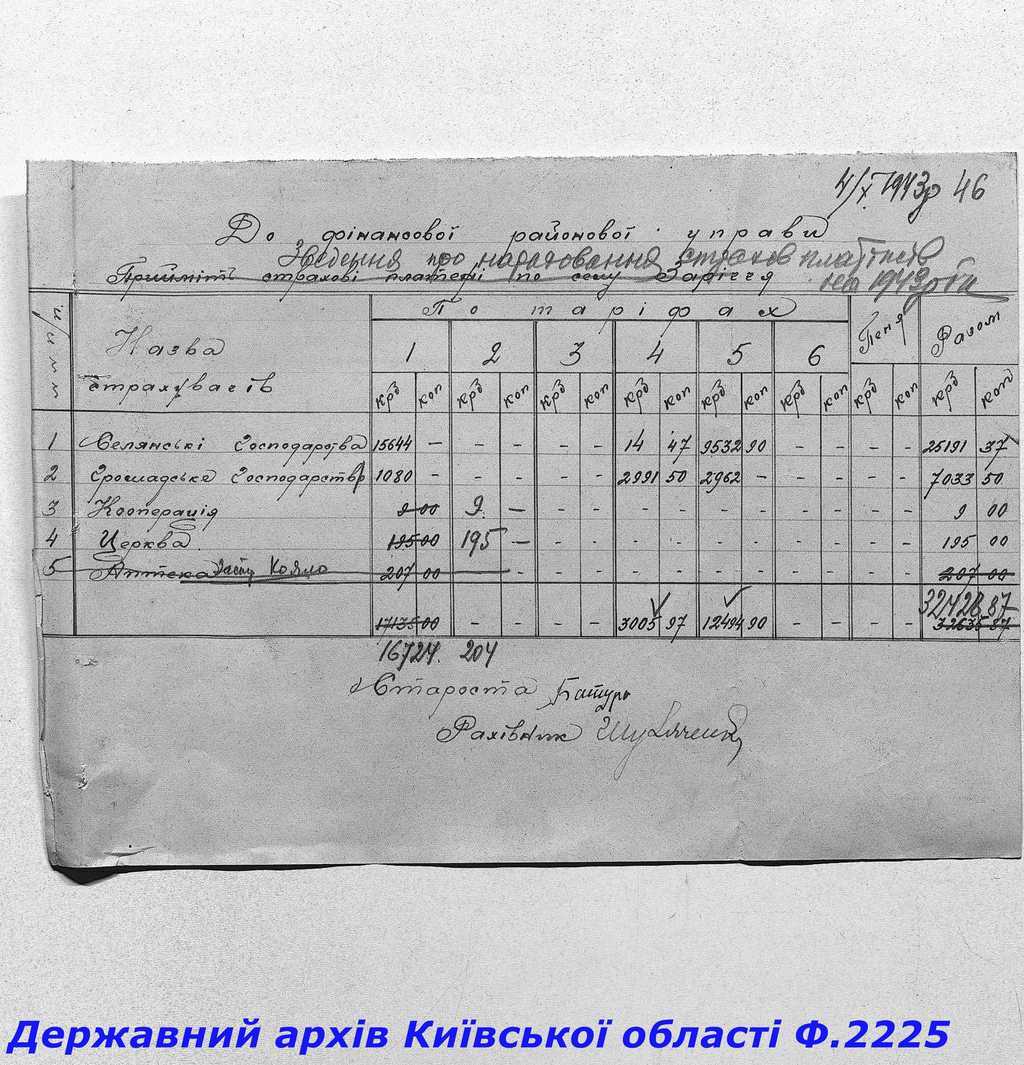 4/X 1943р 46
До фінансової районової управи
Зведення про нараховання страхов платежів
Прийміть страхові платежі по селу Заріччя на 1943 рік
По таріфах Пеня Разом
Назва страхувачів 1 2 3 4 5 6
крб коп крб коп крб коп крб коп крб коп крб коп крб коп крб коп
1 Селянські Господарства 15644 – – – – – 14 47 9532 90 – – – – 25191 37
2 Громадське Господарство 1080 – – – – – 2991 50 2962 – – – – – 7033 50
3 Кооперація 9 00 9 – – – – – – – – – – – 9 00
4 Церква 195 00 195 – – – – – – – – – – – 195 00
5 Аптека 207 00 – – – – – – – – – – 207 00
32,426,87
17135 00 – – – – 3005 97 12494 90 – – – – 32635 87
16724. 204
Староста
Рахівник
Державний архів Київської області Ф.2225